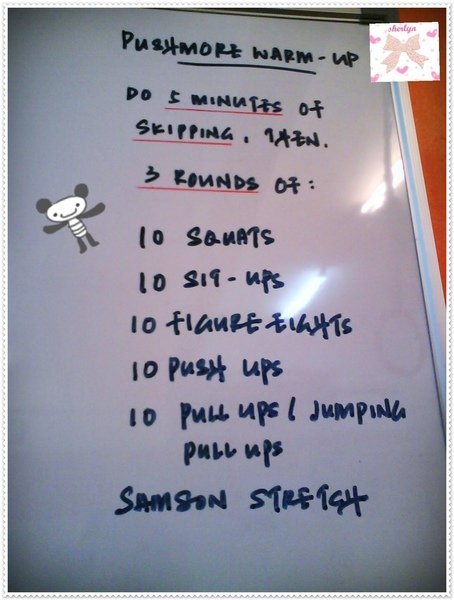 sherlyn
PUSHMORE WARM-UP
DO 5 MINUTES OF
SKIPPING, THEN.
3 ROUNDS OF:
10 SQUATS
10 SIT-UPS
10 FIGURE-EIGHTS
10 PUSH UPS
10 PULL UPS / JUMPING
PULL UPS
SAMSON STRETCH